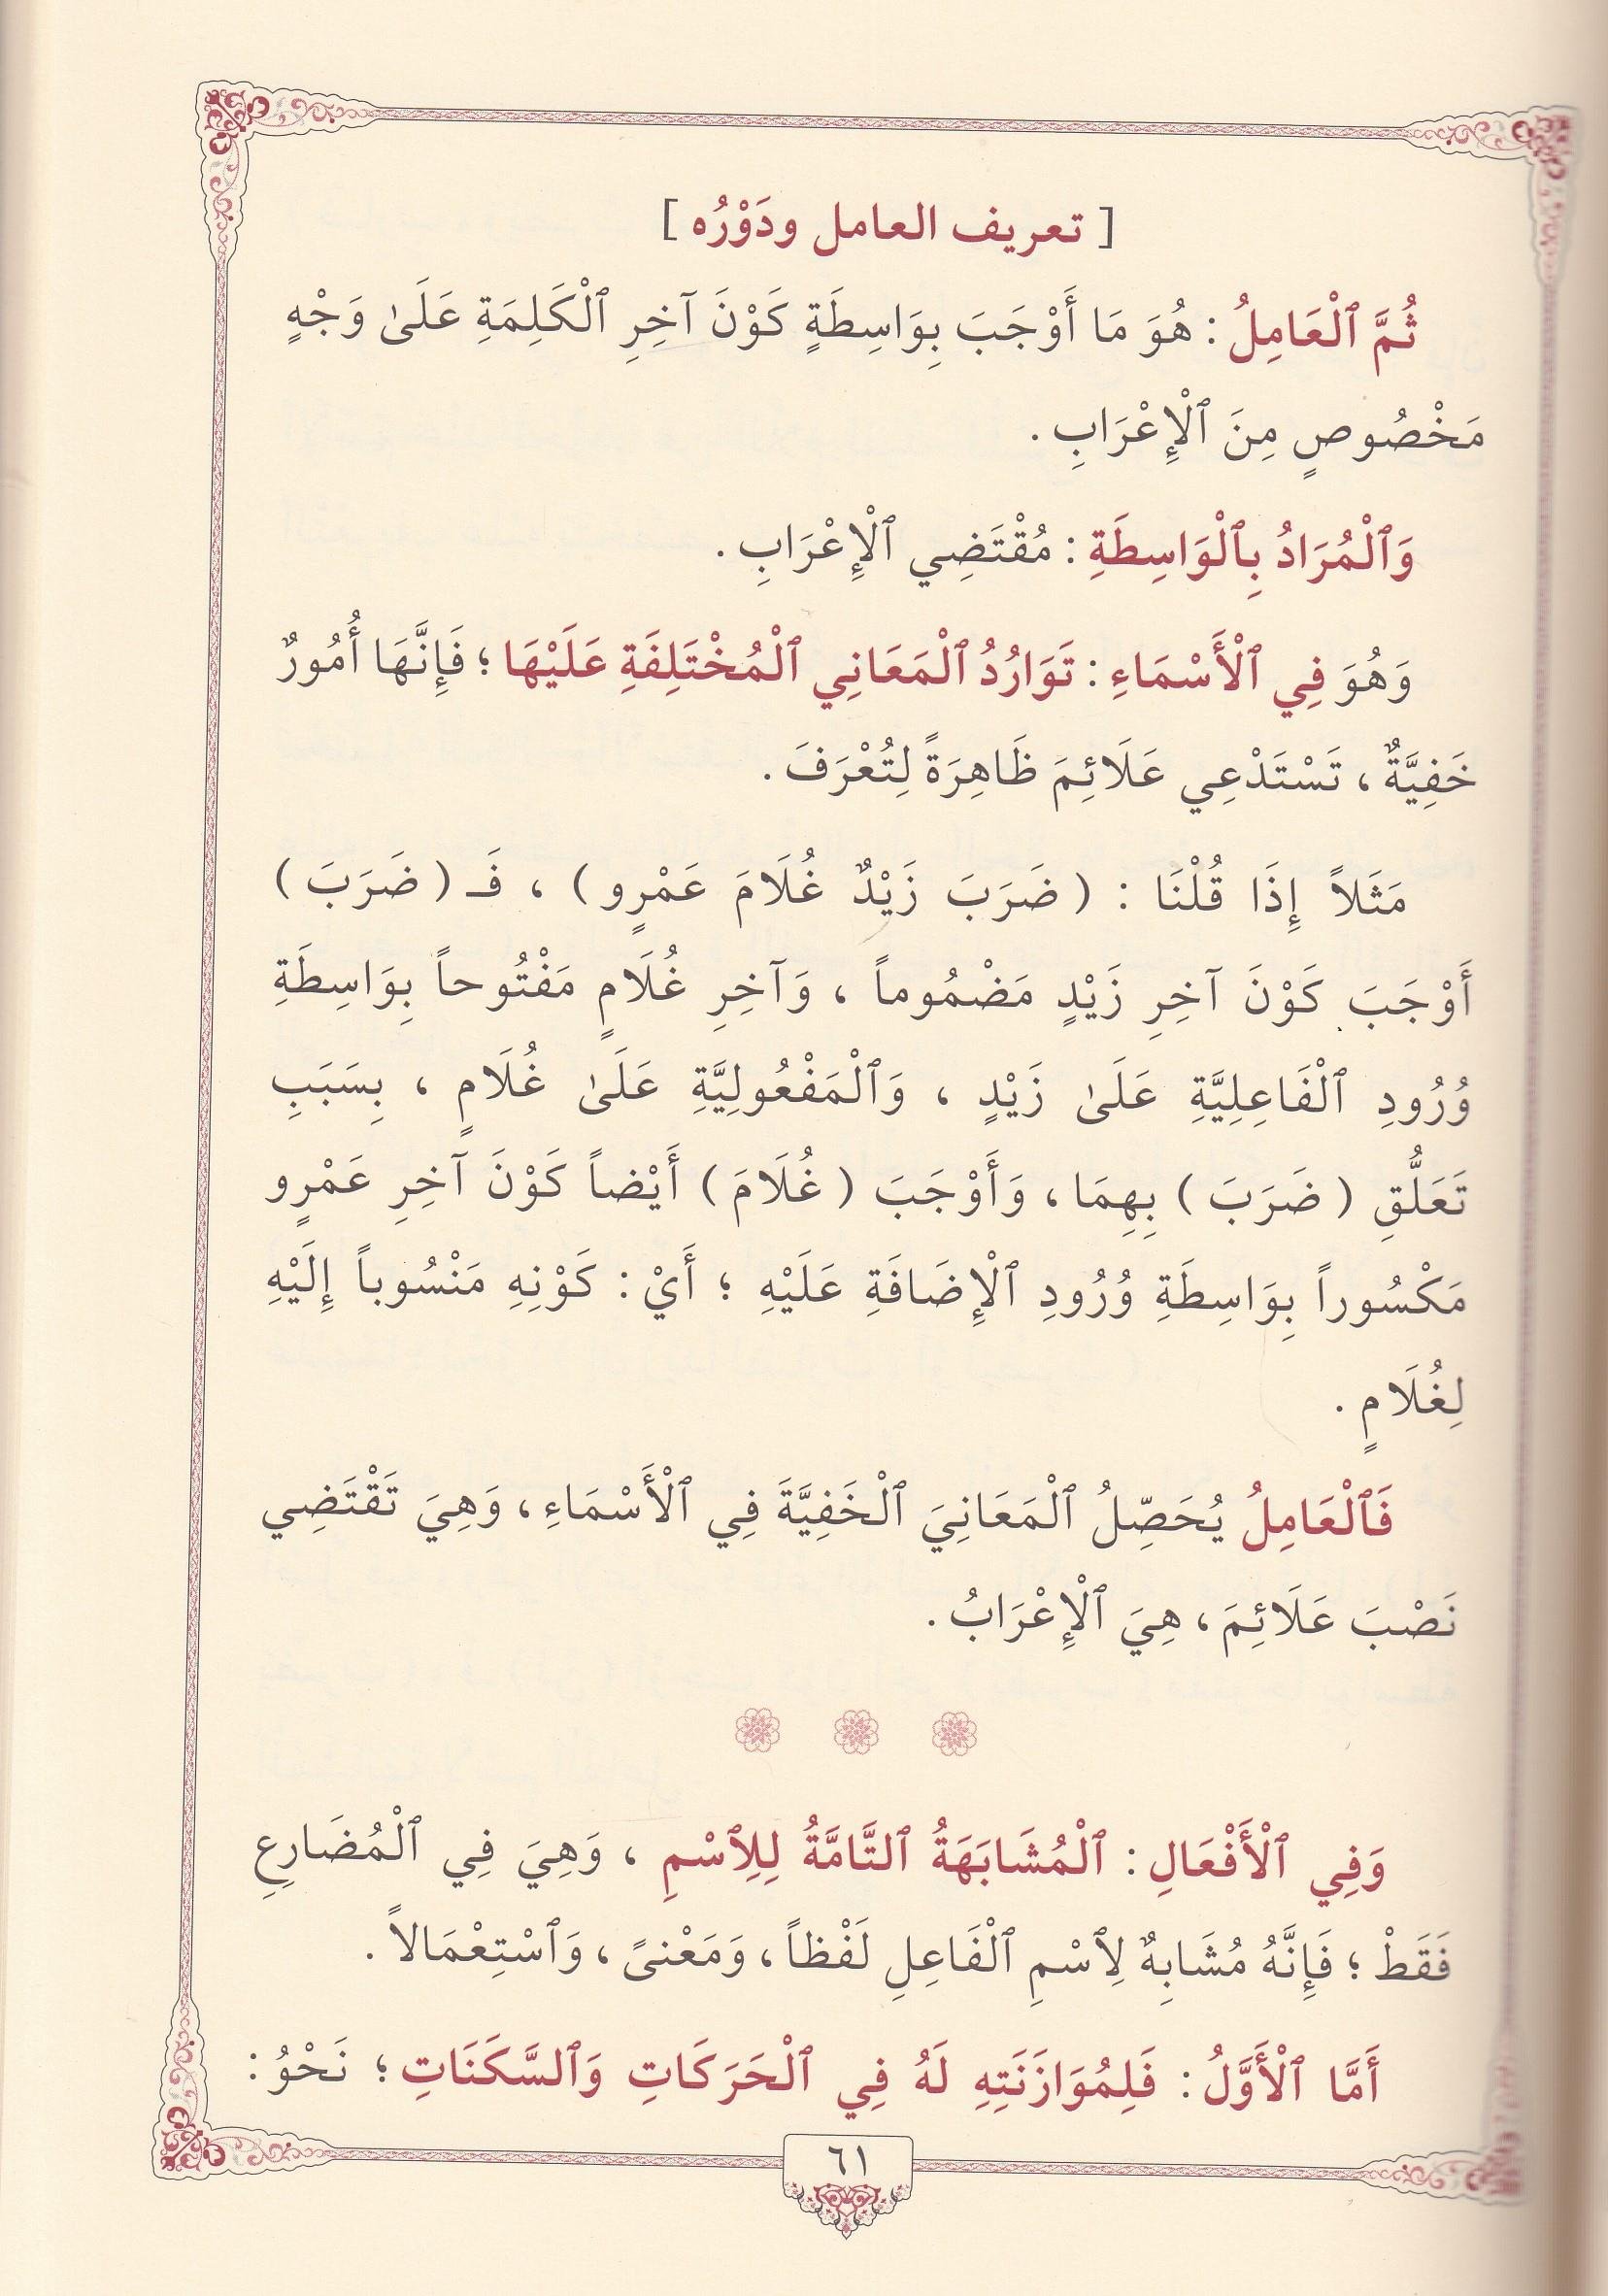 [ تعريف العامل ودَوْرُه ]
ثُمَّ ٱلْعَامِلُ : هُوَ مَا أَوْجَبَ بِوَاسِطَةٍ كَوْنَ آخِرِ ٱلْكَلِمَةِ عَلَىٰ وَجْهٍ
مَخْصُوصٍ مِنَ ٱلْإِعْرَابِ .
وَٱلْمُرَادُ بِٱلْوَاسِطَةِ : مُقْتَضِي ٱلْإِعْرَابِ .
وَهُوَ فِي ٱلْأَسْمَاءِ : تَوَارُدُ ٱلْمَعَانِي ٱلْمُخْتَلِفَةِ عَلَيْهَا ؛ فَإِنَّهَا أُمُورٌ
خَفِيَّةٌ ، تَسْتَدْعِي عَلَائِمَ ظَاهِرَةً لِتُعْرَفَ .
مَثَلاً إِذَا قُلْنَا : ( ضَرَبَ زَيْدٌ غُلَامَ عَمْرٍو ) ، فَـ ( ضَرَبَ )
أَوْجَبَ كَوْنَ آخِرِ زَيْدٍ مَضْمُوماً ، وَآخِرِ غُلَامٍ مَفْتُوحاً بِوَاسِطَةِ
وُرُودِ ٱلْفَاعِلِيَّةِ عَلَىٰ زَيْدٍ ، وَٱلْمَفْعُولِيَّةِ عَلَىٰ غُلَامٍ ، بِسَبَبِ
تَعَلُّقِ ( ضَرَبَ ) بِهِمَا ، وَأَوْجَبَ ( غُلَامَ ) أَيْضاً كَوْنَ آخِرِ عَمْرٍو
مَكْسُوراً بِوَاسِطَةِ وُرُودِ ٱلْإِضَافَةِ عَلَيْهِ ؛ أَيْ : كَوْنِهِ مَنْسُوباً إِلَيْهِ
لِغُلَامٍ .
فَٱلْعَامِلُ يُحَصِّلُ ٱلْمَعَانِيَ ٱلْخَفِيَّةَ فِي ٱلْأَسْمَاءِ ، وَهِيَ تَقْتَضِي
نَصْبَ عَلَائِمَ ، هِيَ ٱلْإِعْرَابُ .
وَفِي ٱلْأَفْعَالِ : ٱلْمُشَابَهَةُ ٱلتَّامَّةُ لِلِٱسْمِ ، وَهِيَ فِي ٱلْمُضَارِعِ
فَقَطْ ؛ فَإِنَّهُ مُشَابِهٌ لِٱسْمِ ٱلْفَاعِلِ لَفْظاً ، وَمَعْنىً ، وَٱسْتِعْمَالاً .
أَمَّا ٱلْأَوَّلُ : فَلِمُوَازَنَتِهِ لَهُ فِي ٱلْحَرَكَاتِ وَٱلسَّكَنَاتِ ؛ نَحْوُ :
٦١